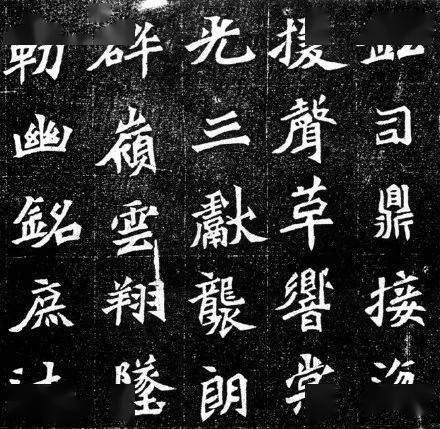 司鼎接
援聲草響
光三獻襲朗
群嶺雲翔墜
勒幽銘庶